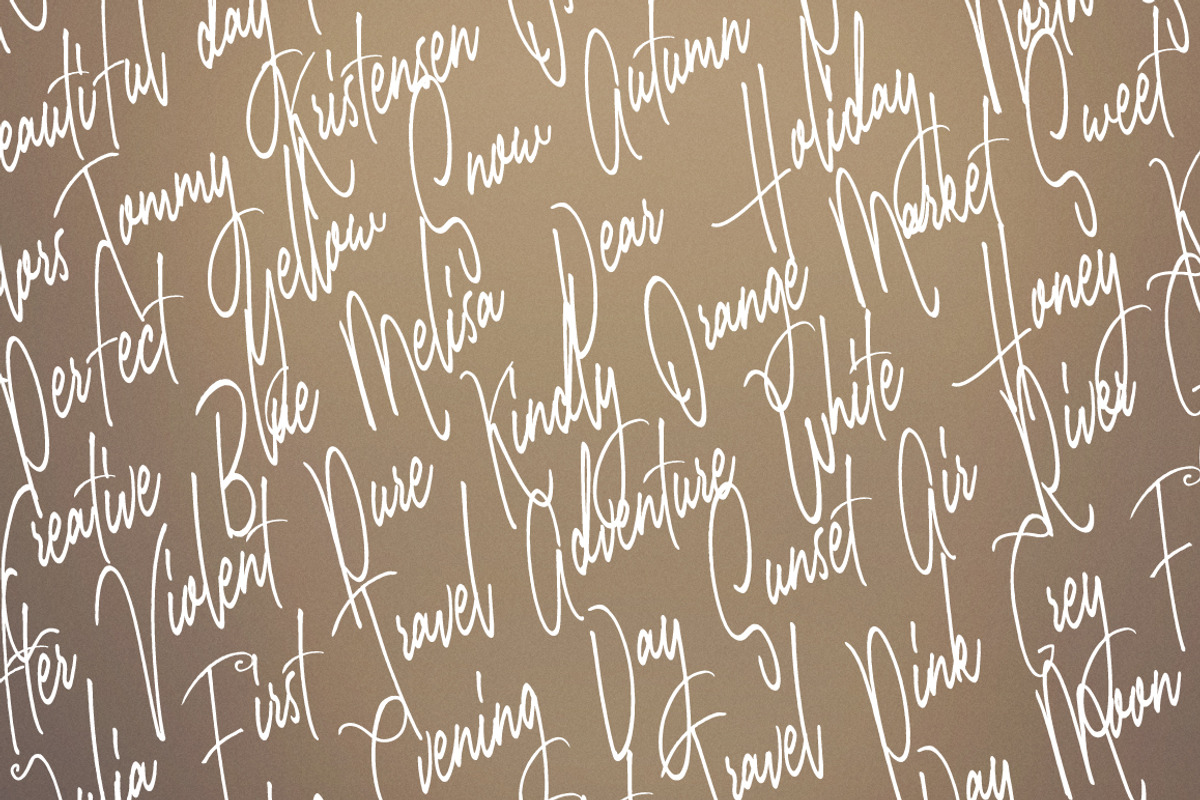 eautiful day
Tommy Kristensen
Perfect Yellow Snow Autumn
Creative Blue Melisa Dear Holiday North
Violent Pure Kindly Orange Market Sweet
Julia First Travel Adventure White Honey
Evening Day Sunset Air River
Travel Pink Grey
Day Moon